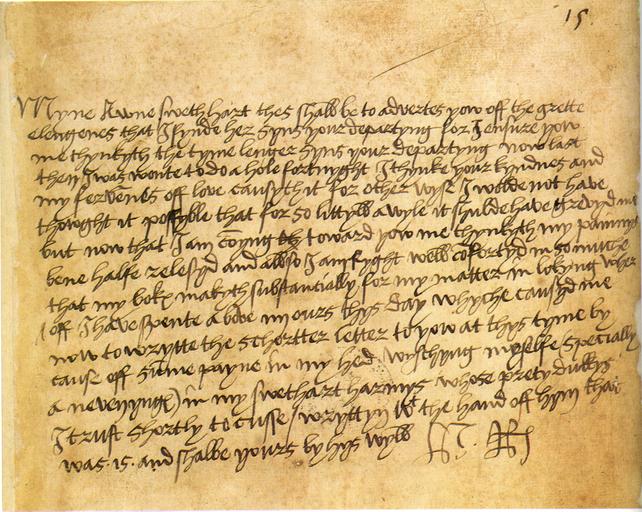 15
Myne awne swethart thes shalbe to advertes yow off the grette
elengenes that I fynde her syns your departyng for I ensure yow
me thynkyth the tyme lenger syns your departyng now last
then I was wonte to do a hole fortnyght I thynke your kyndnes and
my fervenes off love causyth it for other wyse I wolde not have
thowght it possyble that for so littyll a wyle it shulde have grevyd me
but now that I am comyng toward yow me thynkyth my painnys
bene halfe relesyd and allso I am ryght well cofortyd in so muche
that my boke makyth substancially for my matter in lokyng wheroff
I have spente above iiij ours thys day whyche causyd me
now to wrytte the schortter letter to yow at thys tyme by
cause off sume payne in my hed wischyng my selfe specially
a nevenynge in my swethart harmys whose prety dukkys
I trust shortly to cusse wryttyn wt the hand off hym that
was is and shalbe yours by hys wyll H. R